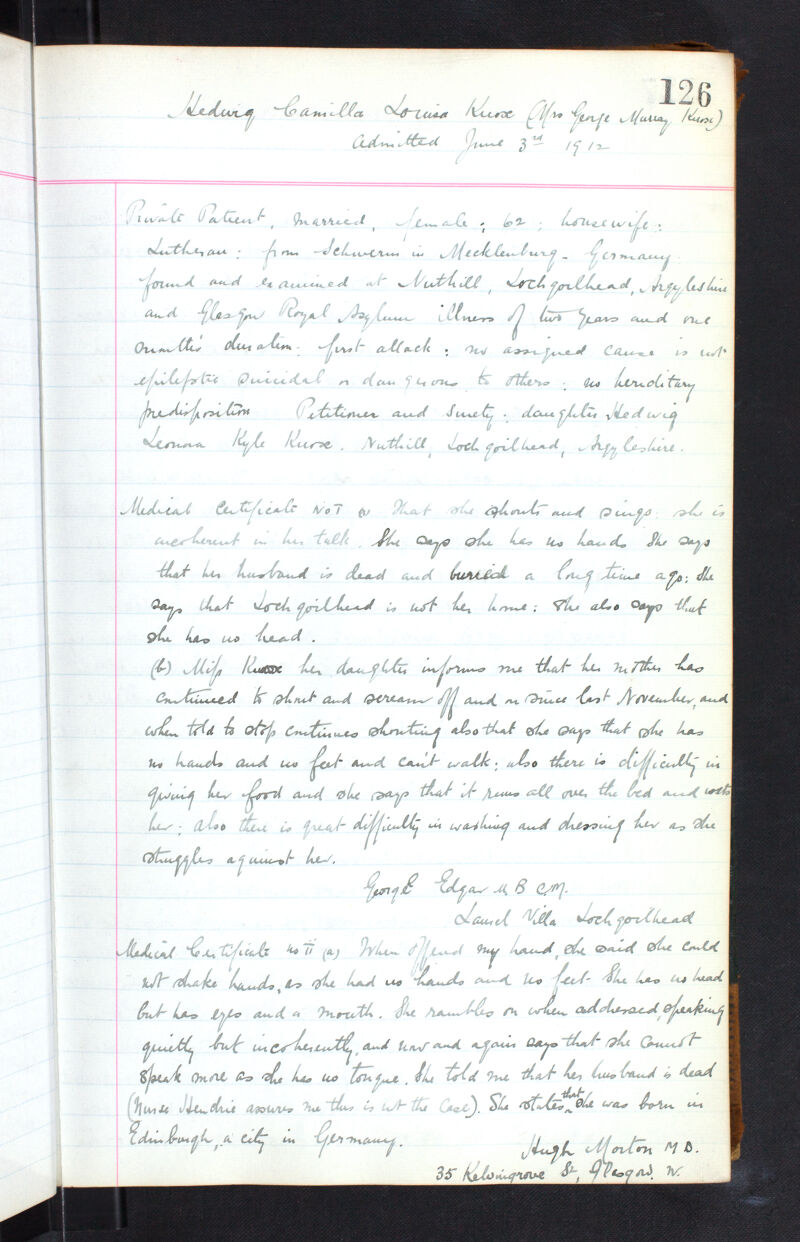 126
Hedwig Camilla Louisa Knox (Mrs George Murray Knox)
Admitted June 3rd 1912
Private Patient, married, female; 62; housewife:
Lutheran: from Schwerin in Mecklenburg - Germany
found and examined at Nuthill, Lochgoilhead, Argyleshire
and Glasgow Royal Asylum illness of two years and one
month's duration: first attack: no assigned cause is not
epileptic suicidal or dangerous to others: no hereditary
predisposition Petitioner and Surety: daughter Hedwig
Leonora Kyle Knox. Nuthill, Lochgoilhead, Argyleshire.
Medical Certificate No I (a) That she shouts and sings: she is
incoherent in her talk. She says she has no hands She says
that her husband is dead and buried a long time ago: She
says that Lochgoilhead is not her home: She also says that
she has no head.
(b) Miss Knox her daughter informs me that her mother has
continued to shout and scream off and on since last November, and
when told to stop continues shouting also that she says that she has
no hands and no feet and can't walk: also there is difficulty in
giving her food and she says that it runs all over the bed and wets
her: also there is great difficulty in washing and dressing her as she
struggles against her.
George Edgar M B C.M.
Laurel Villa Lochgoilhead
Medical Certificate no II (a) When offered my hand, she said she could
not shake hands, as she had no hands and no feet. She has no head
but has eyes and a mouth. She rambles on when addressed, speaking
quietly but incoherently, and now and again says that she cannot
speak more as she has no tongue. She told me that her husband is dead
(Nurse Hendrie assures me this is not the case). She states that she was born in
Edinburgh, a city in Germany.
Hugh Morton M D.
35 Kelvingrove St, Glasgow. W.